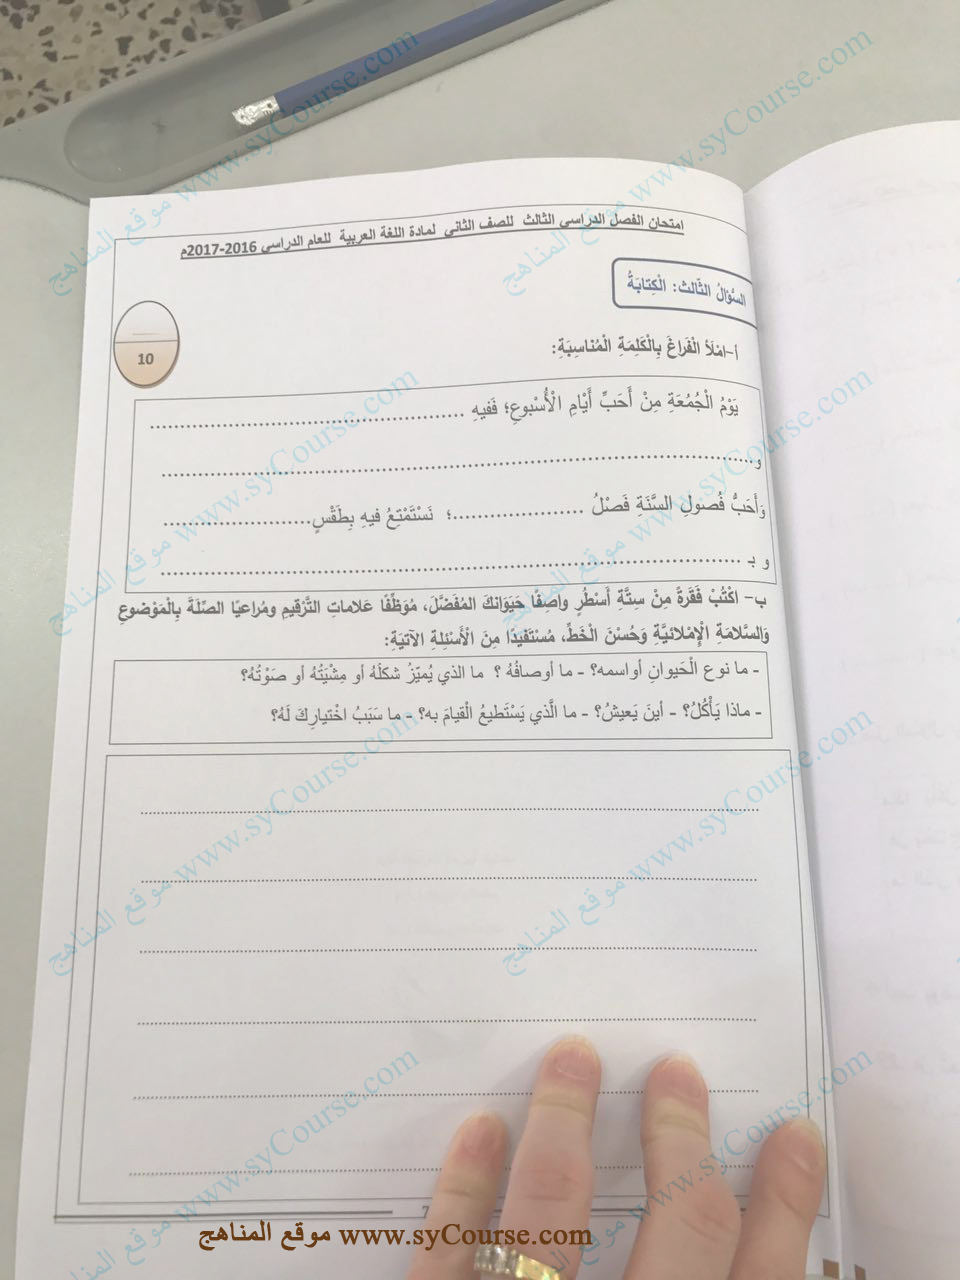 امتحان الفصل الدراسي الثالث للصف الثاني لمادة اللغة العربية للعام الدراسي 2016-2017م
السُّؤالُ الثّالث: الْكِتابَةُ
10
أ-امْلَأ الْفَراغَ بِالْكَلِمَةِ الْمُناسِبَةِ:
يَوْمُ الْجُمُعَةِ مِنْ أَحَبِّ أَيّامِ الْأُسْبوعِ؛ فَفيهِ ................................................
و................................................................................................
وَأَحَبُّ فُصولِ السَّنَةِ فَصْلُ .....................؛ نَسْتَمْتِعُ فيهِ بِطَقْسٍ........................
و بـ ................................................................................................
ب- اكْتُبْ فَقَرَةً مِنْ سِتَّةِ أَسْطُرٍ واصِفًا حَيَوَانكَ المُفَضَّلَ، مُوَظِّفًا عَلاماتِ التَّرْقيمِ ومُراعيًا الصِّلَةَ بِالْمَوْضوعِ
وَالسَّلامَةِ الْإِمْلائيَّةِ وَحُسْنَ الْخَطِّ، مُسْتَفيدًا مِنَ الْأَسْئِلةِ الآتيَةِ:
- ما نوع الْحَيوانِ أواسمه؟ - ما أوصافُهُ ؟ ما الذي يُميّزُ شكلَهُ أو مِشْيَتُهُ أو صَوْتُهُ؟
- ماذا يَأْكُلُ؟ - أينَ يَعيشُ؟ - ما الَّذي يَسْتَطيعُ الْقيامَ به؟ - ما سَبَبُ اخْتيارِكَ لَهُ؟
7
موقع المناهج www.syCourse.com